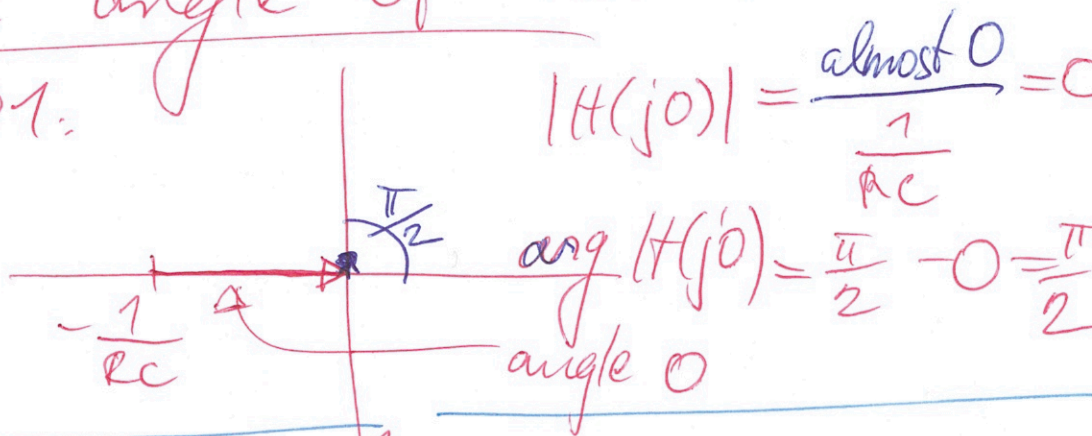 angle of
1:
|H(j0)| = almost 0 / 1/RC = 0
π/2
arg H(j0) = π/2 - 0 = π/2
-1/RC
angle 0